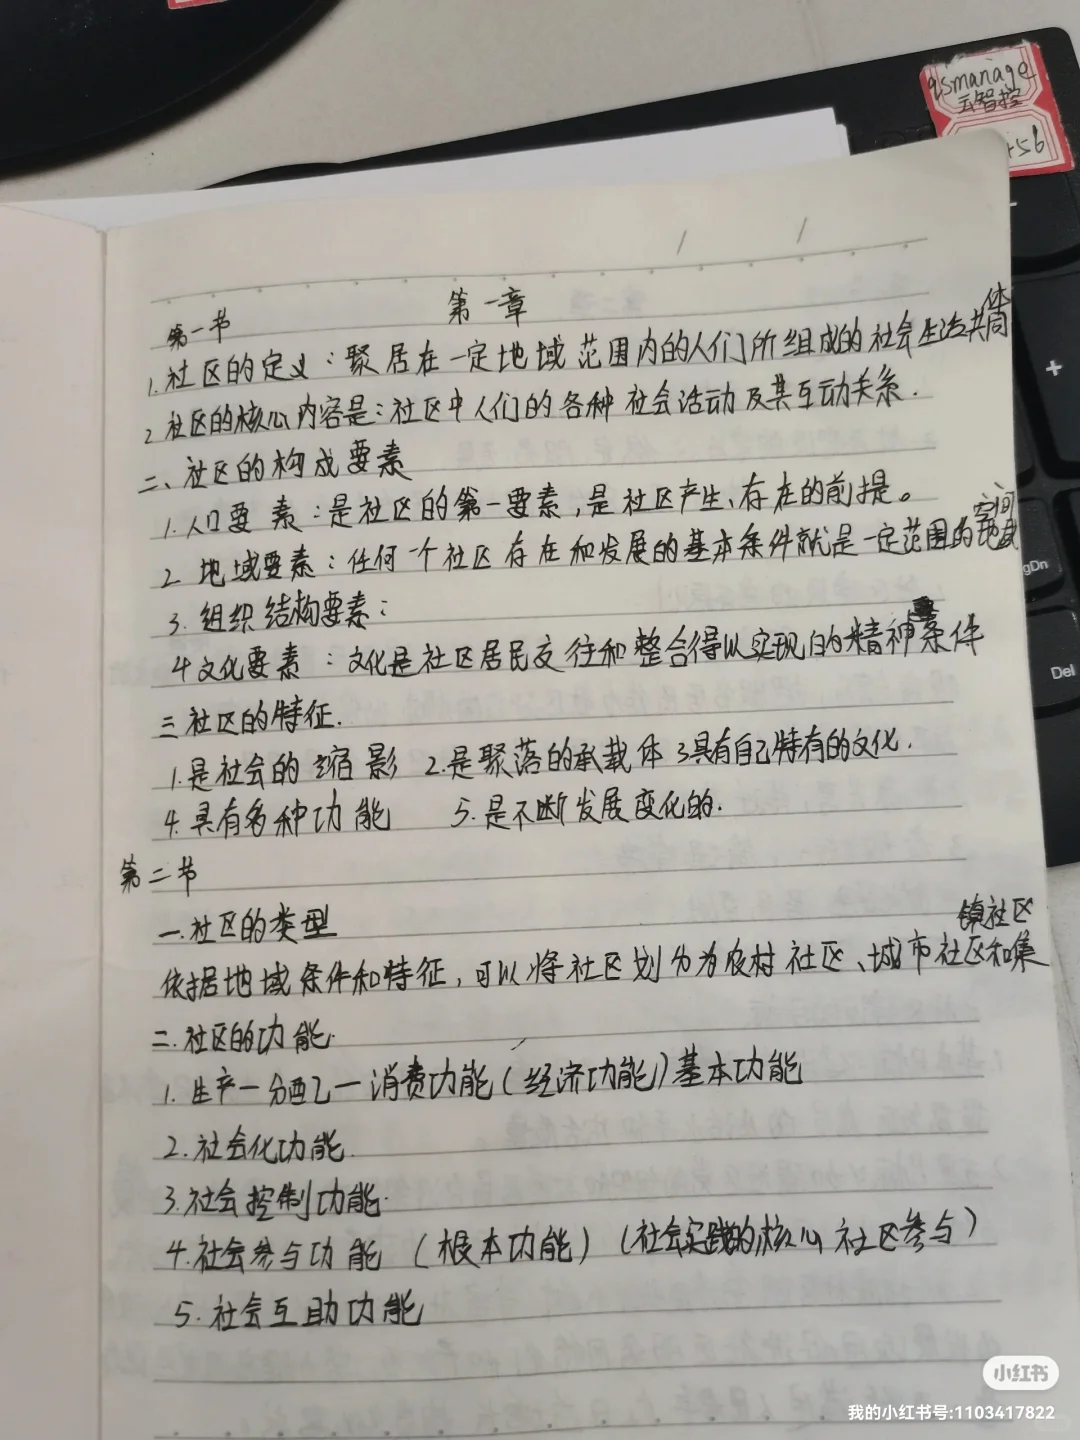 qsmanage
云智控
456
第一章
第一节
1. 社区的定义：聚居在一定地域范围内的人们所组成的社会生活共同体
2 社区的核心内容是：社区中人们的各种社会活动及其互动关系.
二、社区的构成要素
1. 人口要素：是社区的第一要素，是社区产生、存在的前提。
2 地域要素：任何一个社区存在和发展的基本条件就是一定范围的地域空间
3. 组织结构要素：
4 文化要素：文化是社区居民交往和整合得以实现的精神条件
三 社区的特征.
1. 是社会的缩影 2. 是聚落的承载体 3 具有自己特有的文化.
4. 具有多种功能 5. 是不断发展变化的.
第二节
一. 社区的类型
依据地域条件和特征，可以将社区划分为农村社区、城市社区和集镇社区
二. 社区的功能.
1. 生产一分配一消费功能（经济功能）基本功能
2. 社会化功能.
3. 社会控制功能.
4. 社会参与功能（根本功能）（社会实践的核心社区参与）
5. 社会互助功能
+
PgDn
Del
小红书
我的小红书号:1103417822